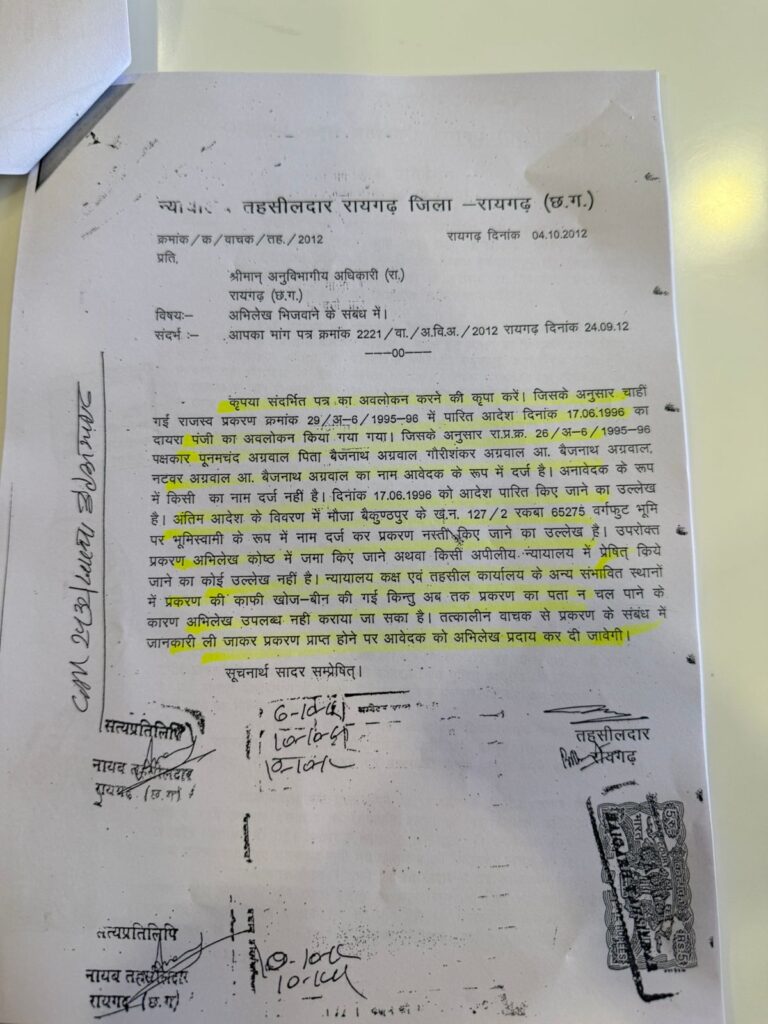 तहसीलदार रायगढ़ जिला –रायगढ़ (छ.ग.)
क्रमांक/क/वाचक/तह./2012 रायगढ़ दिनांक 04.10.2012
प्रति,
श्रीमान् अनुविभागीय अधिकारी (रा.)
रायगढ़ (छ.ग.)
विषयः– अभिलेख भिजवाने के संबंध में।
संदर्भ :– आपका मांग पत्र क्रमांक 2221/वा./अ.वि.अ./2012 रायगढ़ दिनांक 24.09.12
––––00–––
कृपया संदर्भित पत्र का अवलोकन करने की कृपा करें। जिसके अनुसार चाहीं
गई राजस्व प्रकरण क्रमांक 29/अ–6/1995–96 में पारित आदेश दिनांक 17.06.1996 का
दायरा पंजी का अवलोकन किया गया गया। जिसके अनुसार रा.प्र.क्र. 26/अ–6/1995–96
पक्षकार पूनमचंद अग्रवाल पिता बैजनाथ अग्रवाल गौरीशंकर अग्रवाल आ. बैजनाथ अग्रवाल,
नटवर अग्रवाल आ. बैजनाथ अग्रवाल का नाम आवेदक के रूप में दर्ज है। अनावेदक के रूप
में किसी का नाम दर्ज नहीं है। दिनांक 17.06.1996 को आदेश पारित किए जाने का उल्लेख
है। अंतिम आदेश के विवरण में मौजा बैकुण्ठपुर के ख.नं. 127/2 रकबा 65275 वर्गफुट भूमि
पर भूमिस्वामी के रूप में नाम दर्ज कर प्रकरण नस्ती किए जाने का उल्लेख है। उपरोक्त
प्रकरण अभिलेख कोष्ठ में जमा किए जाने अथवा किसी अपीलीय न्यायालय में प्रेषित् किये
जाने का कोई उल्लेख नहीं है। न्यायालय कक्ष एवं तहसील कार्यालय के अन्य संभावित स्थानों
में प्रकरण की काफी खोज–बीन की गई किन्तु अब तक प्रकरण का पता न चल पाने के
कारण अभिलेख उपलब्ध नही कराया जा सका है। तत्कालीन वाचक से प्रकरण के संबंध में
जानकारी ली जाकर प्रकरण प्राप्त होने पर आवेदक को अभिलेख प्रदाय कर दी जावेगी।
सूचनार्थ सादर सम्प्रेषित्।
तहसीलदार
रायगढ़
सत्यप्रतिलिपि
नायब तहसीलदार
रायगढ़ (छ.ग.)
सत्यप्रतिलिपि
नायब तहसीलदार
रायगढ़ (छ.ग.)